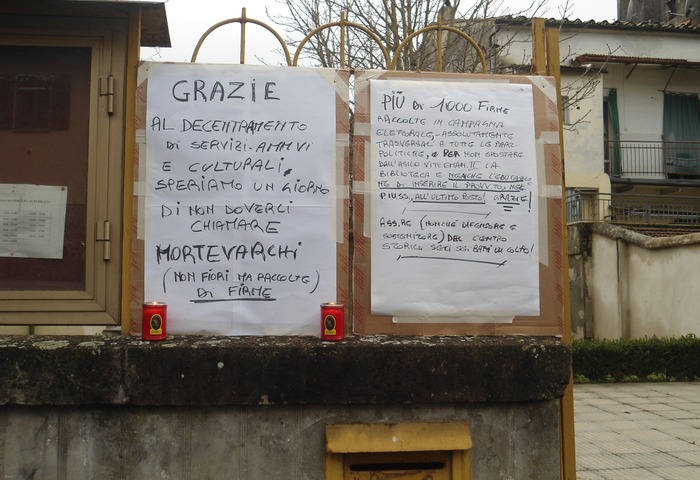 GRAZIE
AL DECENTRAMENTO
DI SERVIZI-AMM.VI
E CULTURALI,
SPERIAMO UN GIORNO
DI NON DOVERCI
CHIAMARE
MORTEVARCHI
(NON FIORI MA RACCOLTE)
DI FIRME
PIÙ DI 1000 FIRME
RACCOLTE IN CAMPAGNA
ELETTORALE, ASSOLUTAMENTE
TRASVERSALI A TUTTE LE PARTI
POLITICHE, E PER NON SPOSTARE
DALL'ASILO VITT. EMAN. II LA
BIBLIOTECA E
DI INSERIRE IL PROVV.TO, NEL
P.I.U.S.S., ALL'ULTIMO POSTO! GRAZIE!
ASS.RE (NONCHÉ DIFENSORE E
SOSTENITORE) DEL CENTRO
STORICO SENZ BATTI UN COLPO!